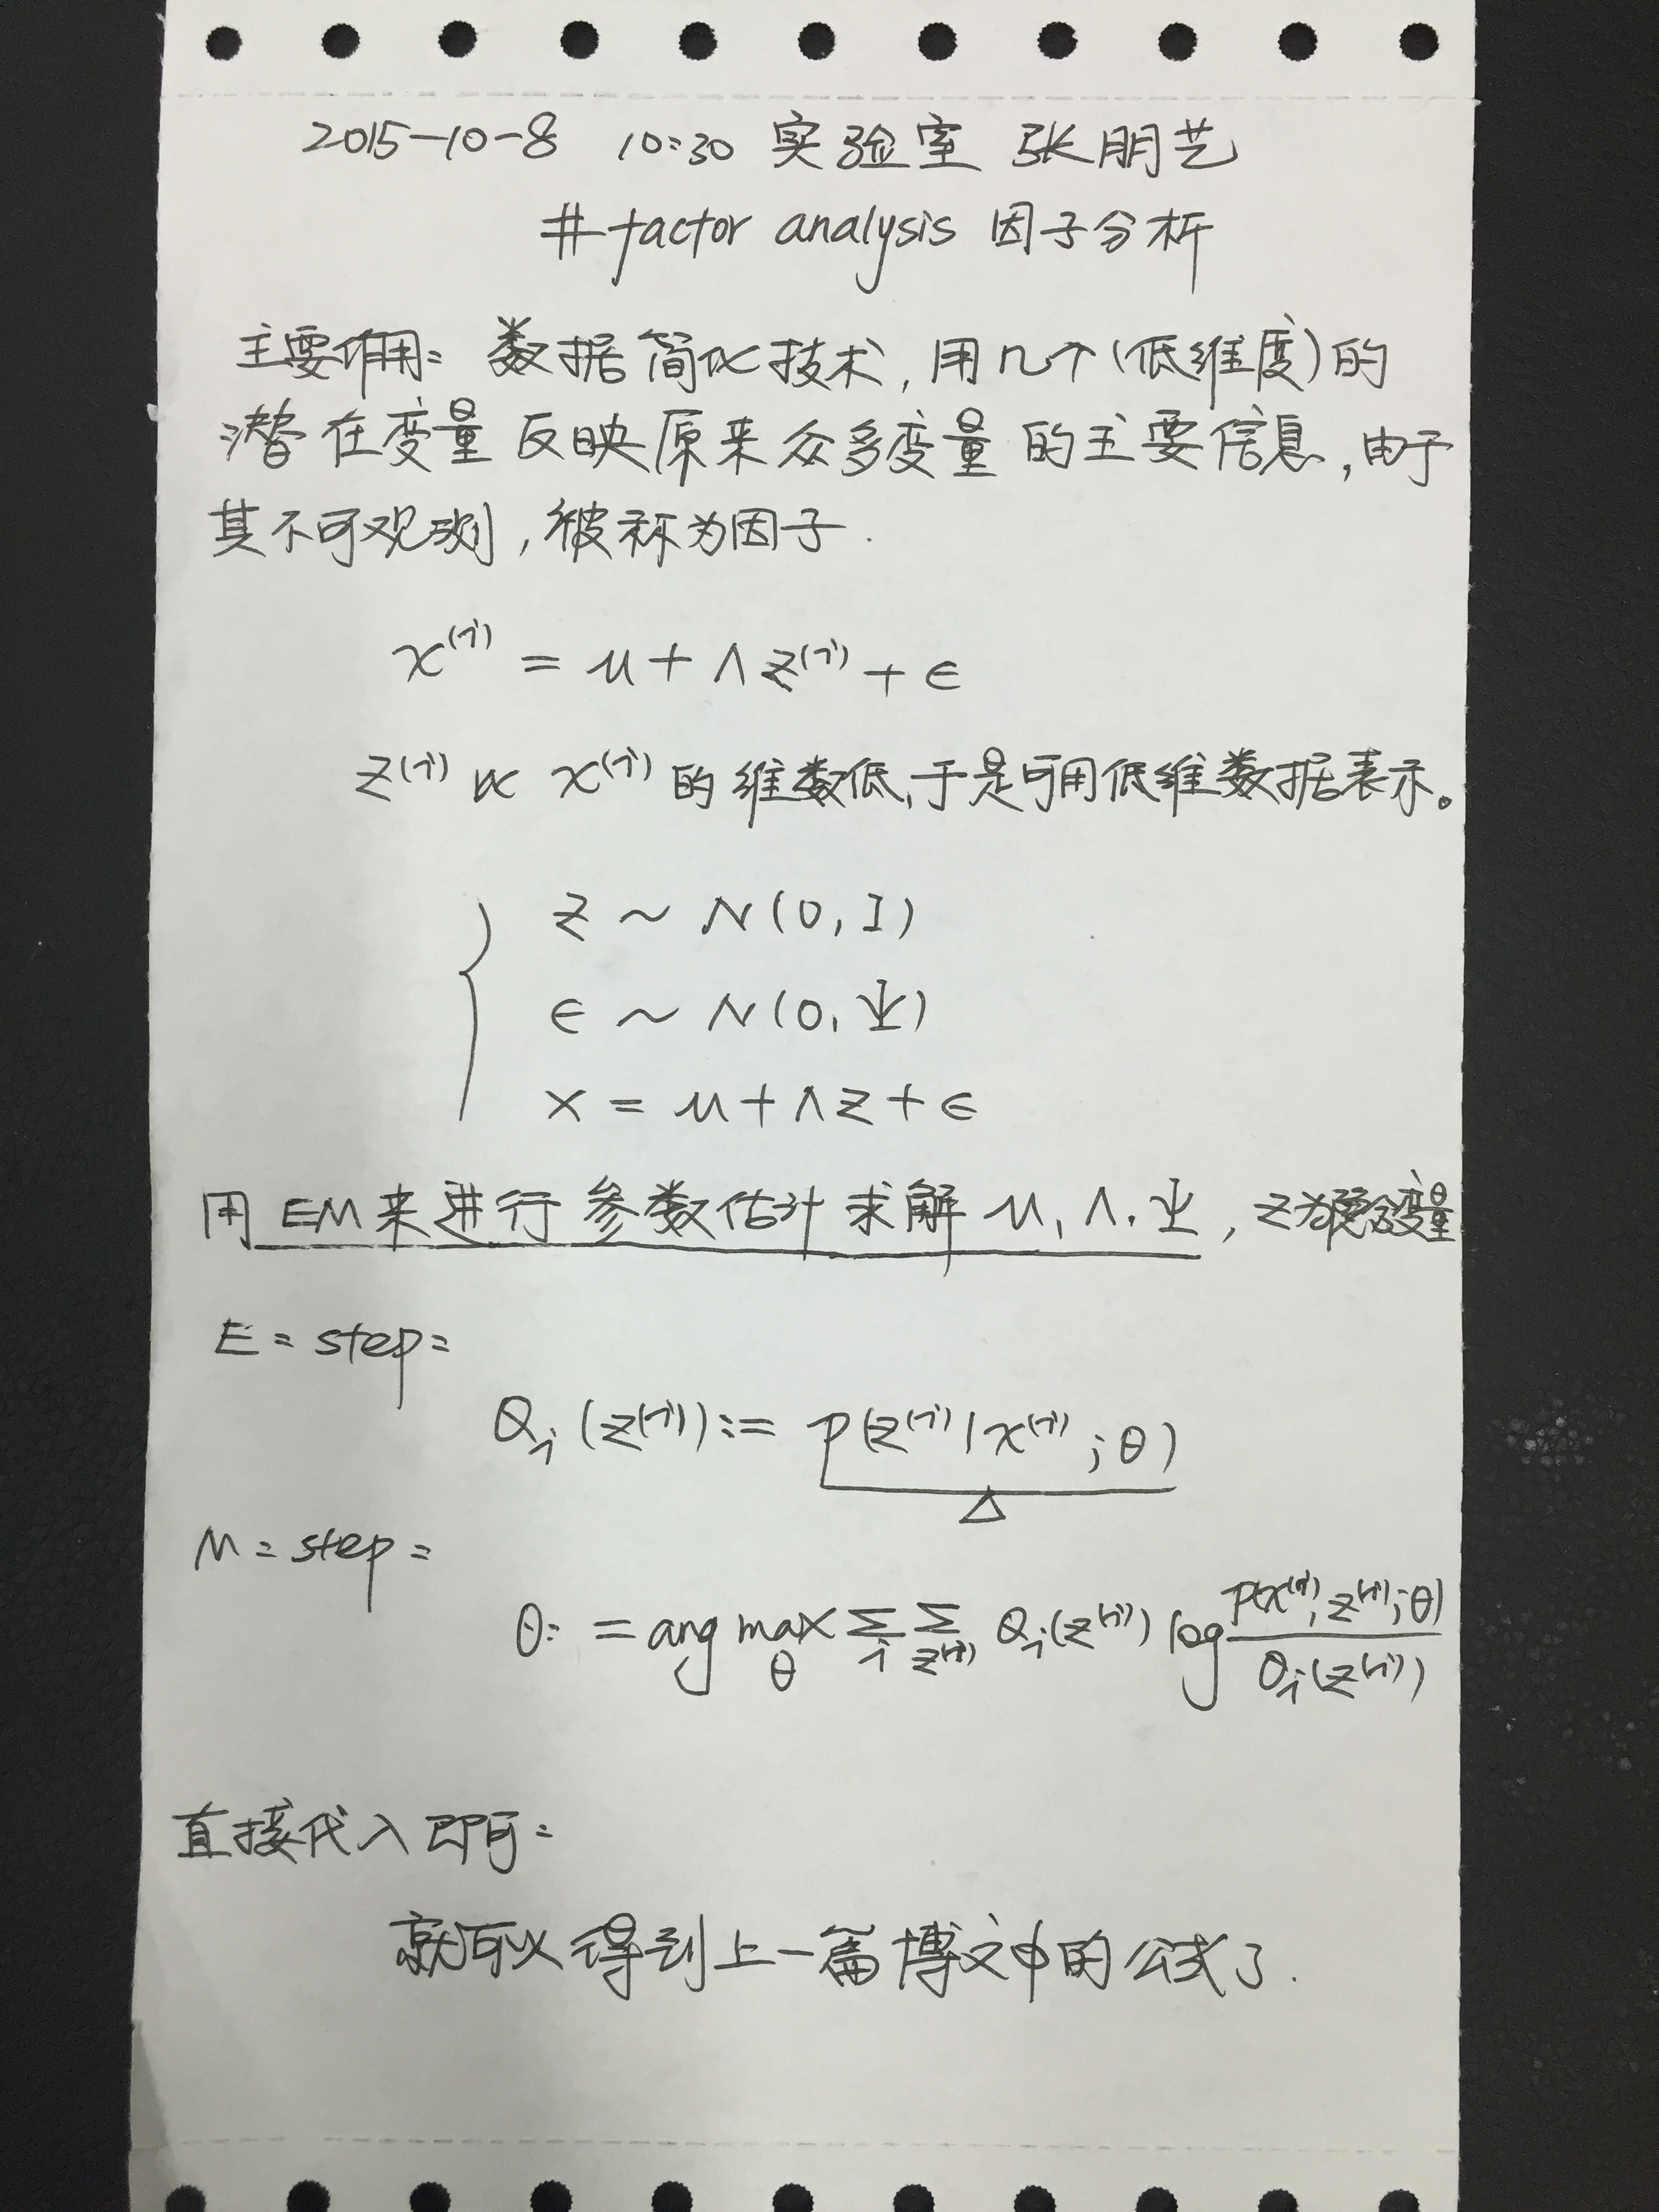 2015-10-8 10:30 实验室 张朋艺
# factor analysis 因子分析
主要作用: 数据简化技术, 用几个(低维度)的
潜在变量反映原来众多变量的主要信息, 由于
其不可观测, 被称为因子.
x⁽ⁱ⁾ = μ + Λz⁽ⁱ⁾ + ϵ
z⁽ⁱ⁾ 比 x⁽ⁱ⁾ 的维数低, 于是可用低维数据表示。
z ~ N(0, I)
ϵ ~ N(0, Ψ)
x = μ + Λz + ϵ
用EM来进行参数估计求解 μ, Λ, Ψ, z为隐含变量
E = step:
Qᵢ(z⁽ⁱ⁾) := p(z⁽ⁱ⁾|x⁽ⁱ⁾; θ)
Δ
M = step:
θ := arg max_θ Σ_i Σ_z⁽ⁱ⁾ Qᵢ(z⁽ⁱ⁾) log p(x⁽ⁱ⁾, z⁽ⁱ⁾; θ) / Qᵢ(z⁽ⁱ⁾)
直接代入即可:
就可以得到上一篇博文中的公式了.